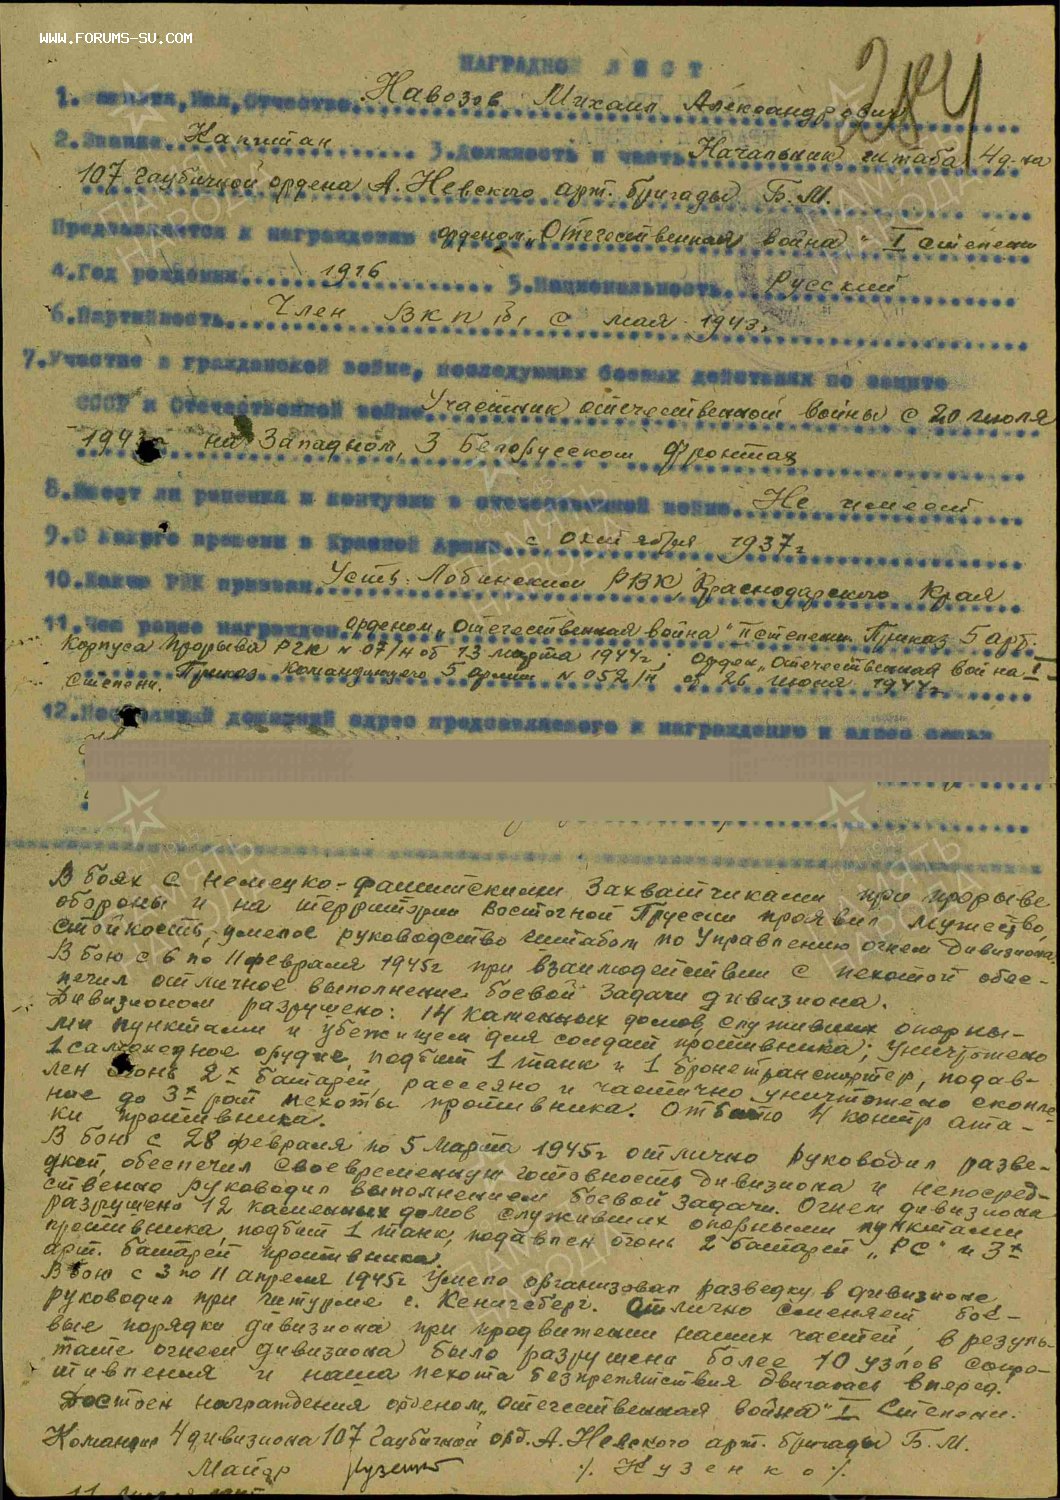 WWW.FORUMS-SU.COM
НАГРАДНОЙ ЛИСТ
284
1. Фамилия, Имя, Отчество Навозов Михаил Александрович
2. Звание Капитан 3. Должность и часть Начальник штаба 4 д-на
107 гаубичной ордена А. Невского арт. бригады Б.М.
Представляется к награждению орденом „Отечественная война" I степени
4. Год рождения 1916 5. Национальность Русский
6. Партийность Член ВКП(б) с мая 1943г
7. Участие в гражданской войне, последующих боевых действиях по защите
СССР и Отечественной войне Участник отечественной войны с 20 июля
1943г на Западном, 3 Белорусском фронтах
8. Имеет ли ранения и контузии в отечественной войне Не имеет
9. С какого времени в Красной Армии с октября 1937г
10. Каким РВК призван Усть-Лабинским РВК, Краснодарского Края
11. Чем ранее награжден орденом „Отечественная война" II степени. Приказ 5 арт.
Корпуса Прорыва РГК № 07/н от 13 марта 1944г; орден „Отечественная война I
степени. Приказ Командующего 5 армии № 052/н от 26 июня 1944г
12. Постоянный домашний адрес представляемого к награждению и адрес семьи
В боях с немецко-фашистскими захватчиками при прорыве
обороны и на территории Восточной Пруссии проявил мужество,
стойкость, умелое руководство штабом по Управлению огнем дивизиона.
В бою с 6 по 11 февраля 1945г при взаимодействии с пехотой обес-
печил отличное выполнение боевой задачи дивизиона.
Дивизионом разрушено: 14 каменных домов, служивших опорны-
ми пунктами и убежищем для солдат противника; Уничтожено
1 самоходное орудие, подбит 1 танк и 1 бронетранспортер, подав-
лен огонь 2х батарей, рассеяно и частично уничтожено скопле-
ние до 3х рот пехоты противника. Отбито 4 контр ата-
ки противника.
В бою с 28 февраля по 5 марта 1945г отлично руководил разве-
дкой, обеспечил своевременную готовность дивизиона и непосред-
ственно руководил выполнением боевой задачи. Огнем дивизиона
разрушено 12 каменных домов служивших опорными пунктами
противника, подбит 1 танк, подавлен огонь 2 батарей „РС" и 3х
арт. батарей противника.
В бою с 3 по 11 апреля 1945г Умело организовал разведку в дивизионе
руководил при штурме г. Кенигсберг. Отлично сменяет бое-
вые порядки дивизиона при продвижении наших частей, в резуль-
тате огнем дивизиона было разрушено более 10 узлов сопро-
тивления и наша пехота безпрепятствия двигалась вперед.
Достоин награждения орденом „Отечественная война" I Степени.
Командир 4 дивизиона 107 Гаубичной орд. А. Невского арт. бригады Б.М.
Майор Кузенко /Кузенко/
ПАМЯТЬ НАРОДА